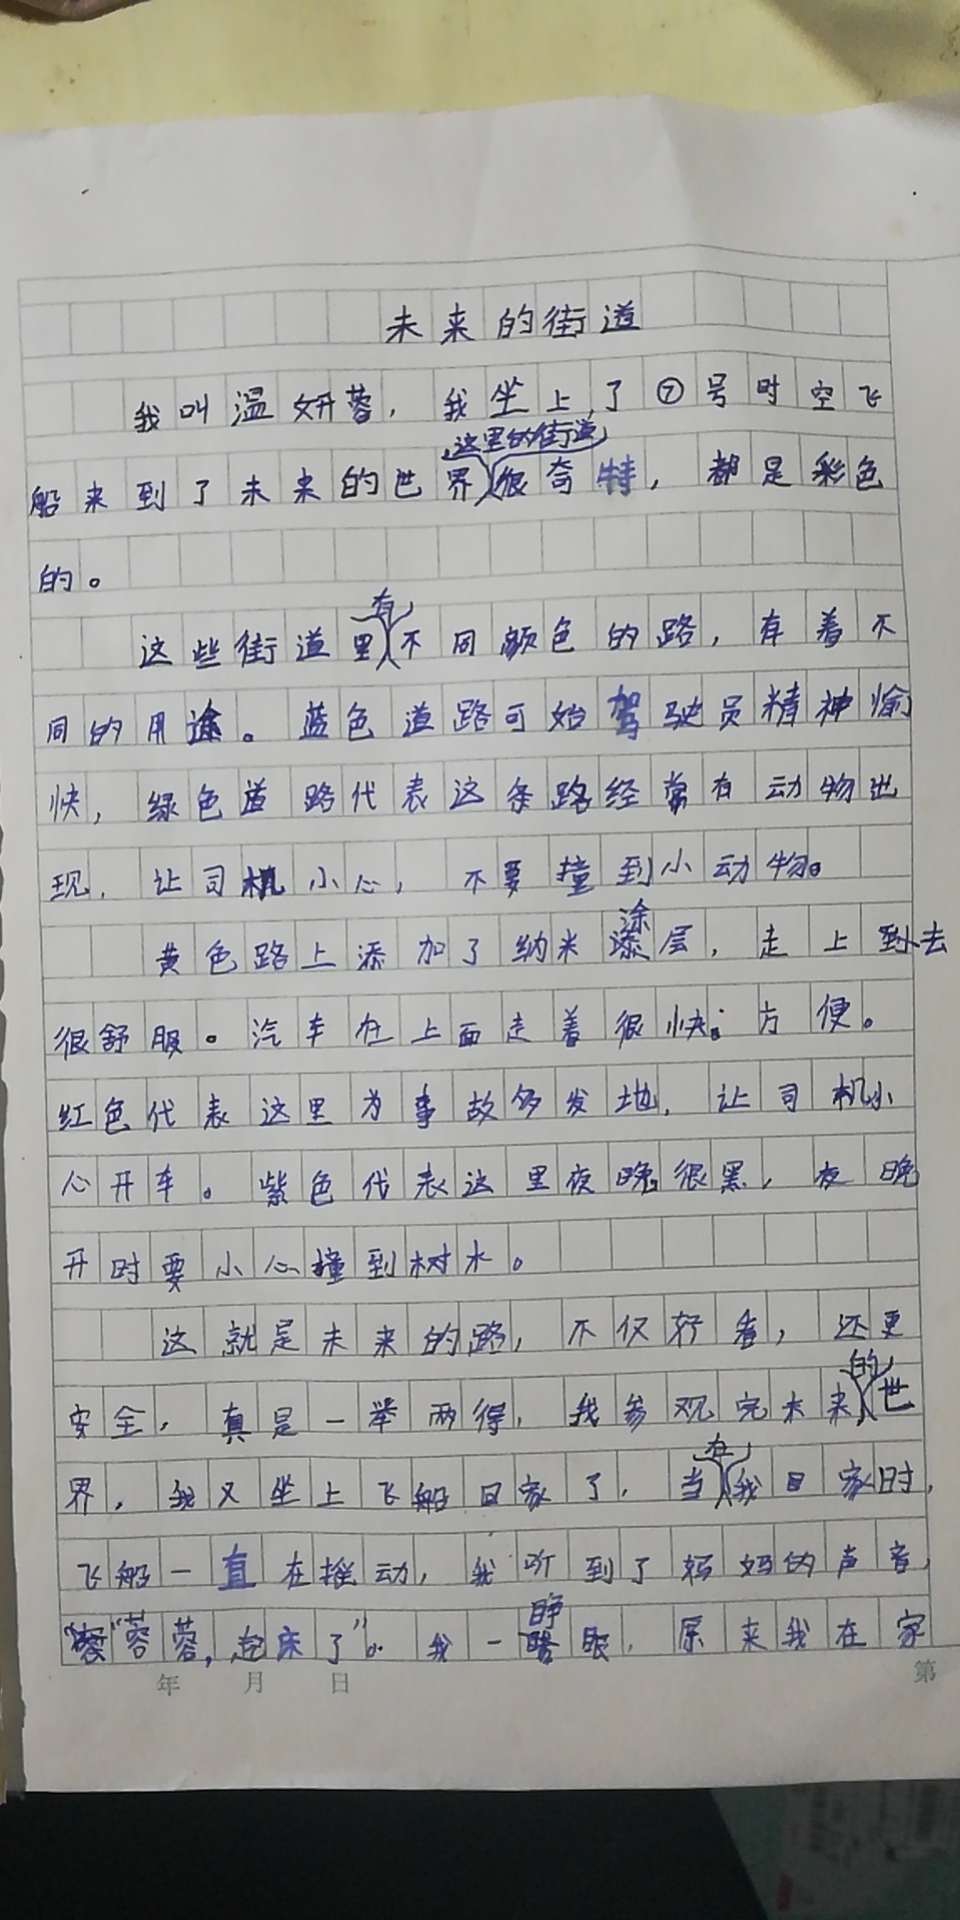 未来的街道
我叫温妍蓉，我坐上了⑦号时空飞
这里的街道
船来到了未来的世界很奇特，都是彩色
的。
有
这些街道里不同颜色的路，有着不
同的用途。蓝色道路可始驾驶员精神愉
快，绿色道路代表这条路经常有动物出
现，让司机小心，不要撞到小动物。
涂
黄色路上添加了纳米层，走上到去
很舒服。汽车在上面走着很快。方便。
红色代表这里为事故多发地，让司机小
心开车。紫色代表这里夜晚很黑，夜晚
开时要小心撞到树木。
这就是未来的路，不仅好看，还更
的
安全，真是一举两得，我参观完未来世
界，我又坐上飞船回家了，当我回家时，
飞船一直在摇动，我听到了妈妈的声音，
睁
"蓉蓉，起床了"。我一眼，原来我在家
年 月 日
第